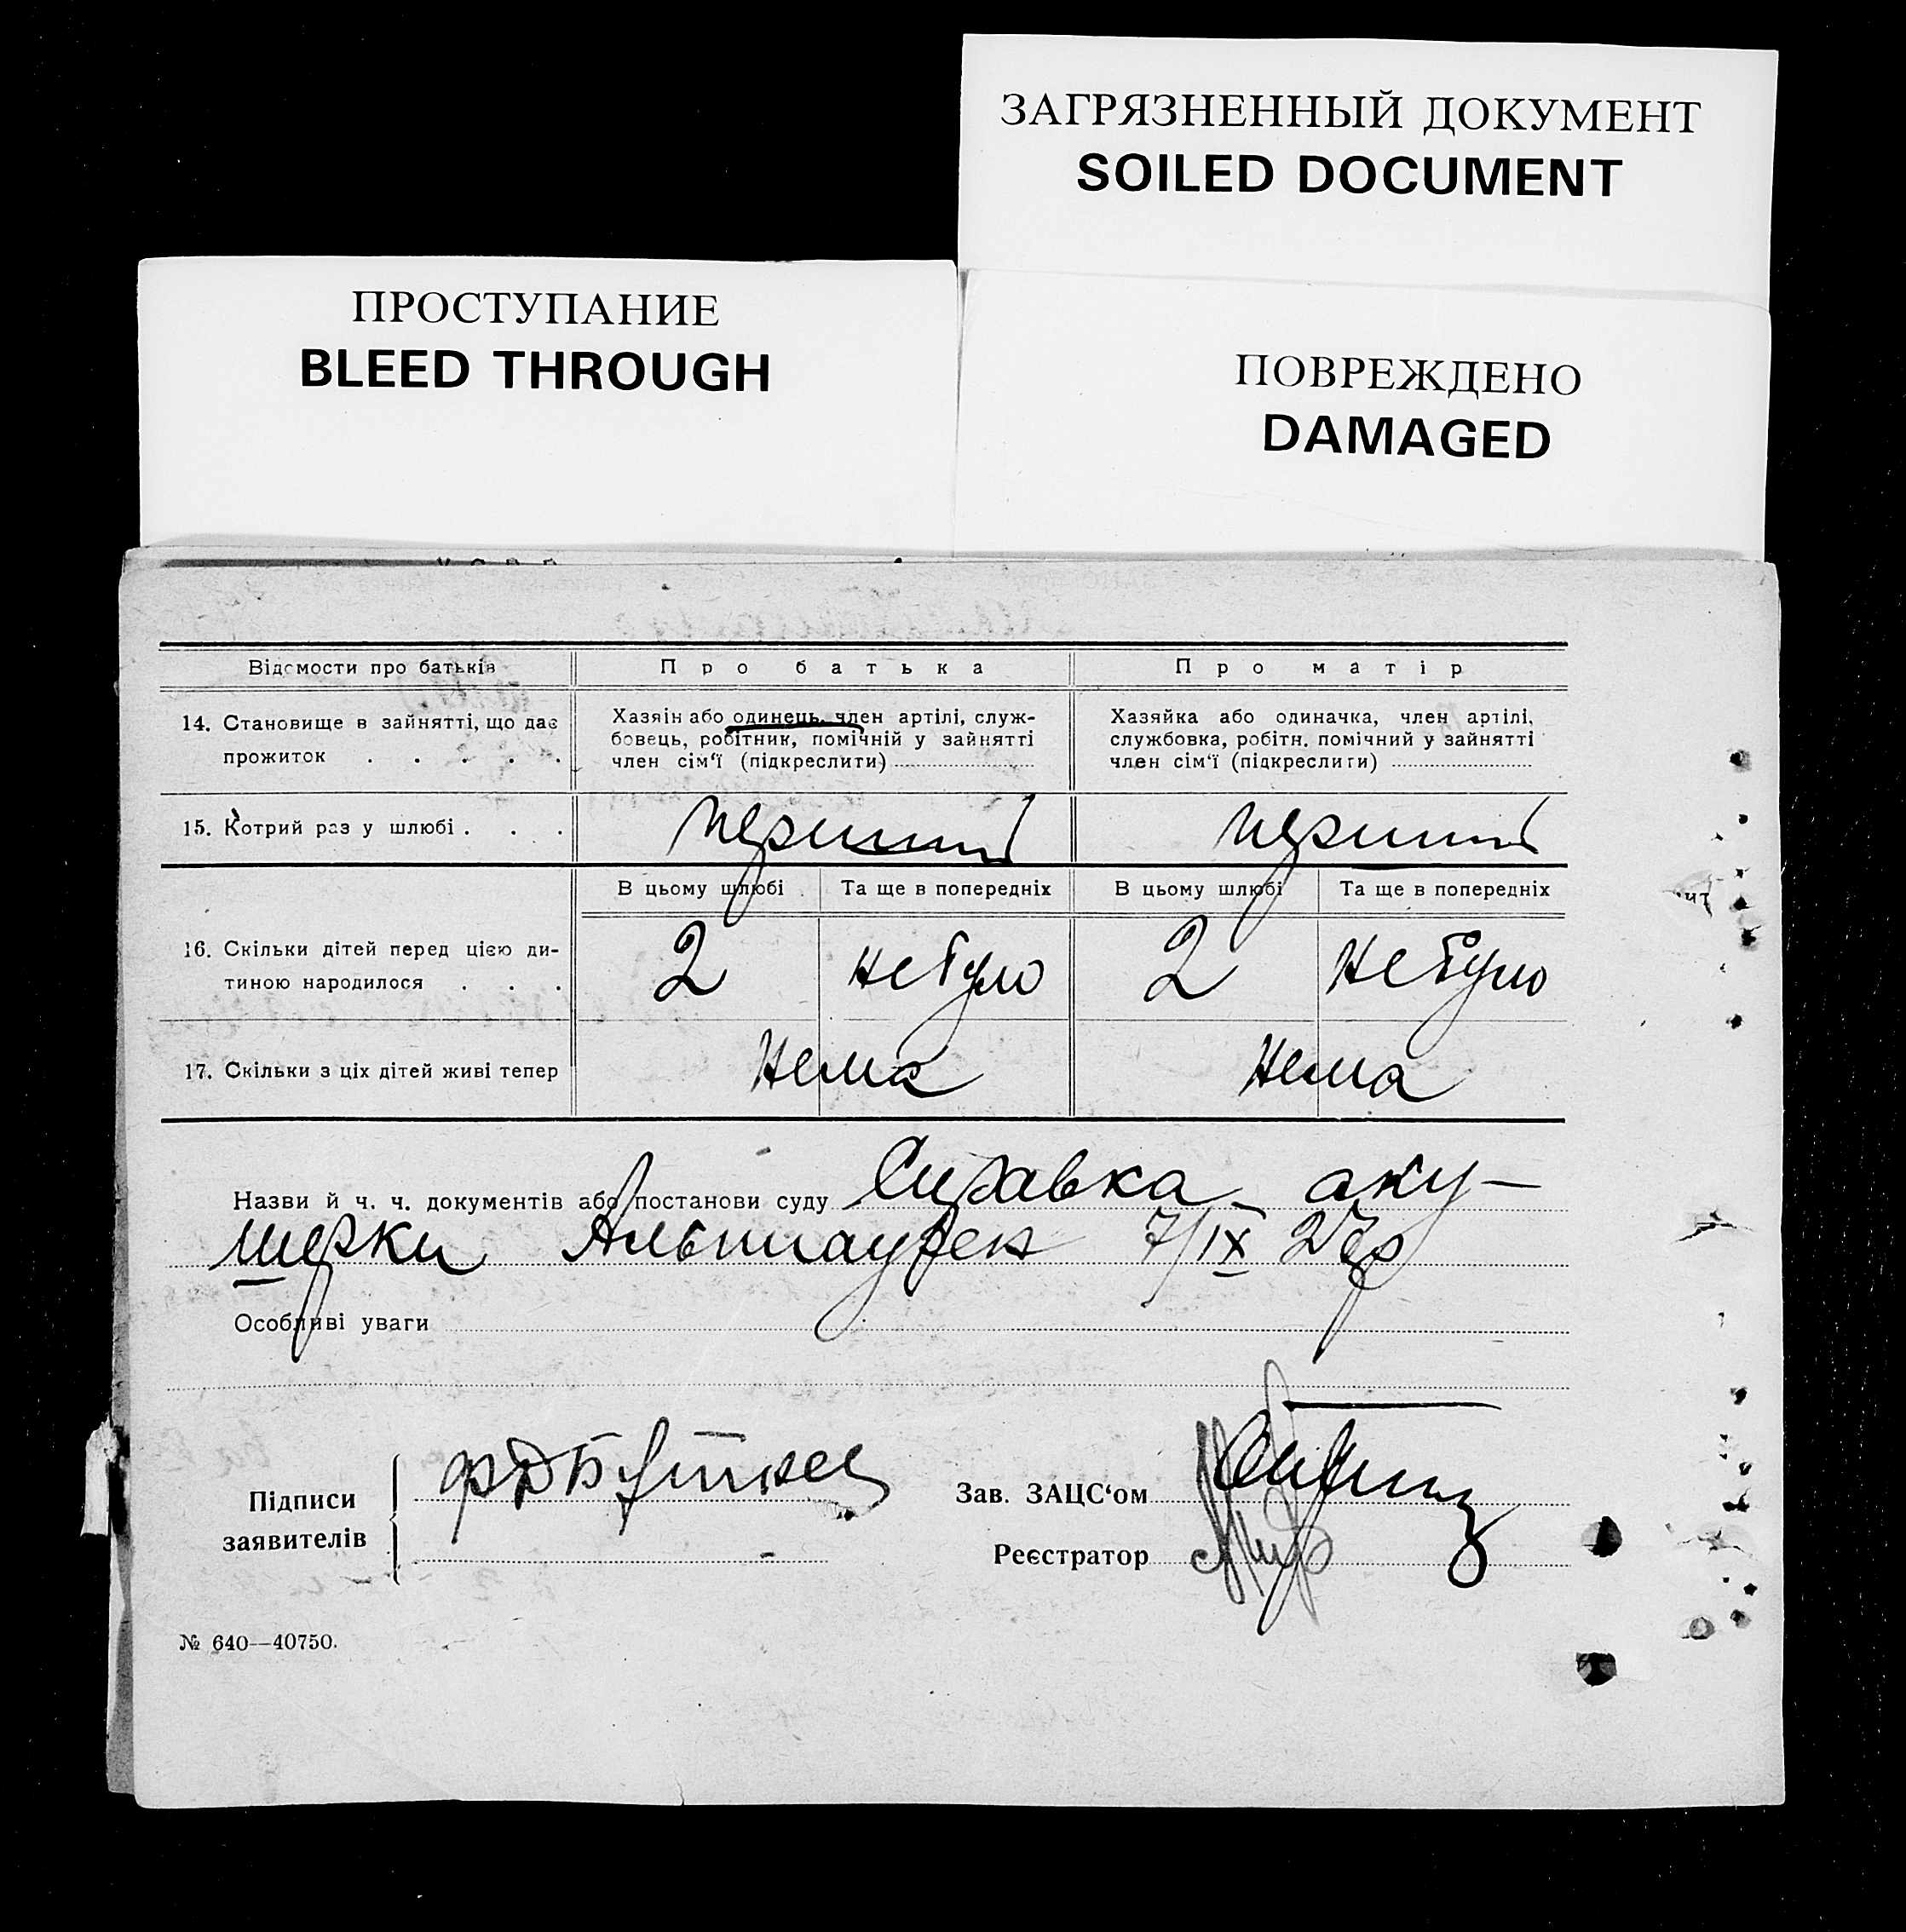 ЗАГРЯЗНЕННЫЙ ДОКУМЕНТ
SOILED DOCUMENT
ПРОСТУПАНИЕ
BLEED THROUGH
ПОВРЕЖДЕНО
DAMAGED
Відомости про батьків
Про батька
Про матір
14. Становище в зайнятті, що дає
прожиток . . . . .
Хазяін або одинець, член артілі, служ-
бовець, робітник, помічній у зайнятті
член сім'ї (підкреслити)
Хазяйка або одиначка, член артілі,
службовка, робітн. помічний у зайнятті
член сім'ї (підкреслити)
15. Котрий раз у шлюбі . . .
перший
перший
В цьому шлюбі
Та ще в попередніх
В цьому шлюбі
Та ще в попередніх
16. Скільки дітей перед цією ди-
тиною народилося . . .
2
не було
2
не було
17. Скільки з ціх дітей живі тепер
Нема
Нема
Назви й ч. ч. документів або постанови суду Справка аку-
шерки 7/IX 27р
Особливі уваги
Підписи
заявителів
Зав. ЗАЦС'ом
Реєстратор
№ 640—40750.